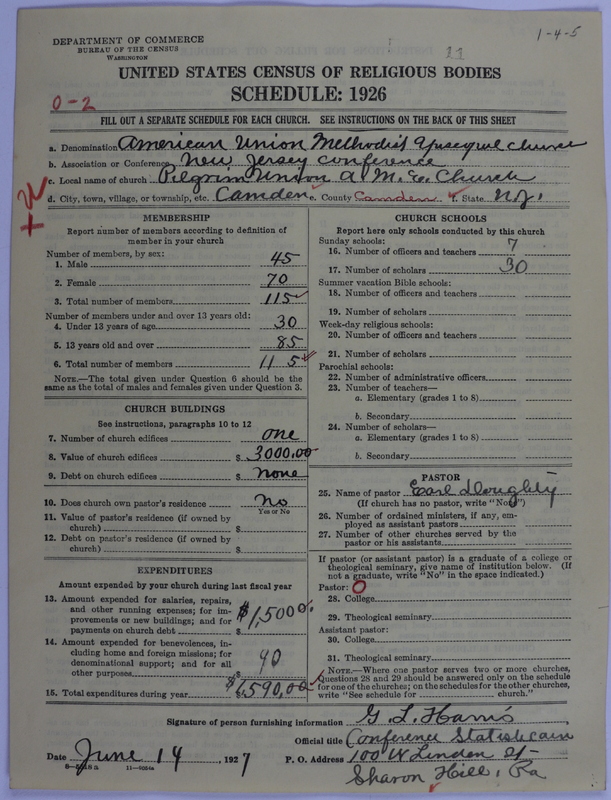 1-4-5
11
DEPARTMENT OF COMMERCE
BUREAU OF THE CENSUS
WASHINGTON
UNITED STATES CENSUS OF RELIGIOUS BODIES
SCHEDULE: 1926
0-2
FILL OUT A SEPARATE SCHEDULE FOR EACH CHURCH. SEE INSTRUCTIONS ON THE BACK OF THIS SHEET
a. Denomination American Union Methodist Episcopal Church
b. Association or Conference New Jersey Conference
c. Local name of church Pilgrim Union A. M. E. Church
d. City, town, village, or township, etc. Camden e. County Camden f. State N.J.
+2
MEMBERSHIP
Report number of members according to definition of member in your church
Number of members, by sex:
1. Male 45
2. Female 70
3. Total number of members 115
Number of members under and over 13 years old:
4. Under 13 years of age 30
5. 13 years old and over 85
6. Total number of members 115
NOTE.—The total given under Question 6 should be the same as the total of males and females given under Question 3.
CHURCH BUILDINGS
See instructions, paragraphs 10 to 12
7. Number of church edifices one
8. Value of church edifices $ 3000.00
9. Debt on church edifices $ none
10. Does church own pastor's residence No
Yes or No
11. Value of pastor's residence (if owned by church) $
12. Debt on pastor's residence (if owned by church) $
EXPENDITURES
Amount expended by your church during last fiscal year
13. Amount expended for salaries, repairs, and other running expenses; for improvements or new buildings; and for payments on church debt $ $1,500
14. Amount expended for benevolences, including home and foreign missions; for denominational support; and for all other purposes $ 90
15. Total expenditures during year $1,590.00
CHURCH SCHOOLS
Report here only schools conducted by this church
Sunday schools:
16. Number of officers and teachers 7
17. Number of scholars 30
Summer vacation Bible schools:
18. Number of officers and teachers
19. Number of scholars
Week-day religious schools:
20. Number of officers and teachers
21. Number of scholars
Parochial schools:
22. Number of administrative officers
23. Number of teachers—
a. Elementary (grades 1 to 8)
b. Secondary
24. Number of scholars—
a. Elementary (grades 1 to 8)
b. Secondary
PASTOR
25. Name of pastor Earl Doughty
(If church has no pastor, write "None")
26. Number of ordained ministers, if any, employed as assistant pastors
27. Number of other churches served by the pastor or his assistants
If pastor (or assistant pastor) is a graduate of a college or theological seminary, give name of institution below. (If not a graduate, write "No" in the space indicated.)
Pastor: 0
28. College
29. Theological seminary
Assistant pastor:
30. College
31. Theological seminary
NOTE.—Where one pastor serves two or more churches, Questions 28 and 29 should be answered only on the schedule for one of the churches; on the schedules for the other churches, write "See schedule for church."
Signature of person furnishing information G. L. Harris
Official title Conference Statistician
Date June 14, 1927 P. O. Address 100 W Linden St
Sharon Hill, Pa